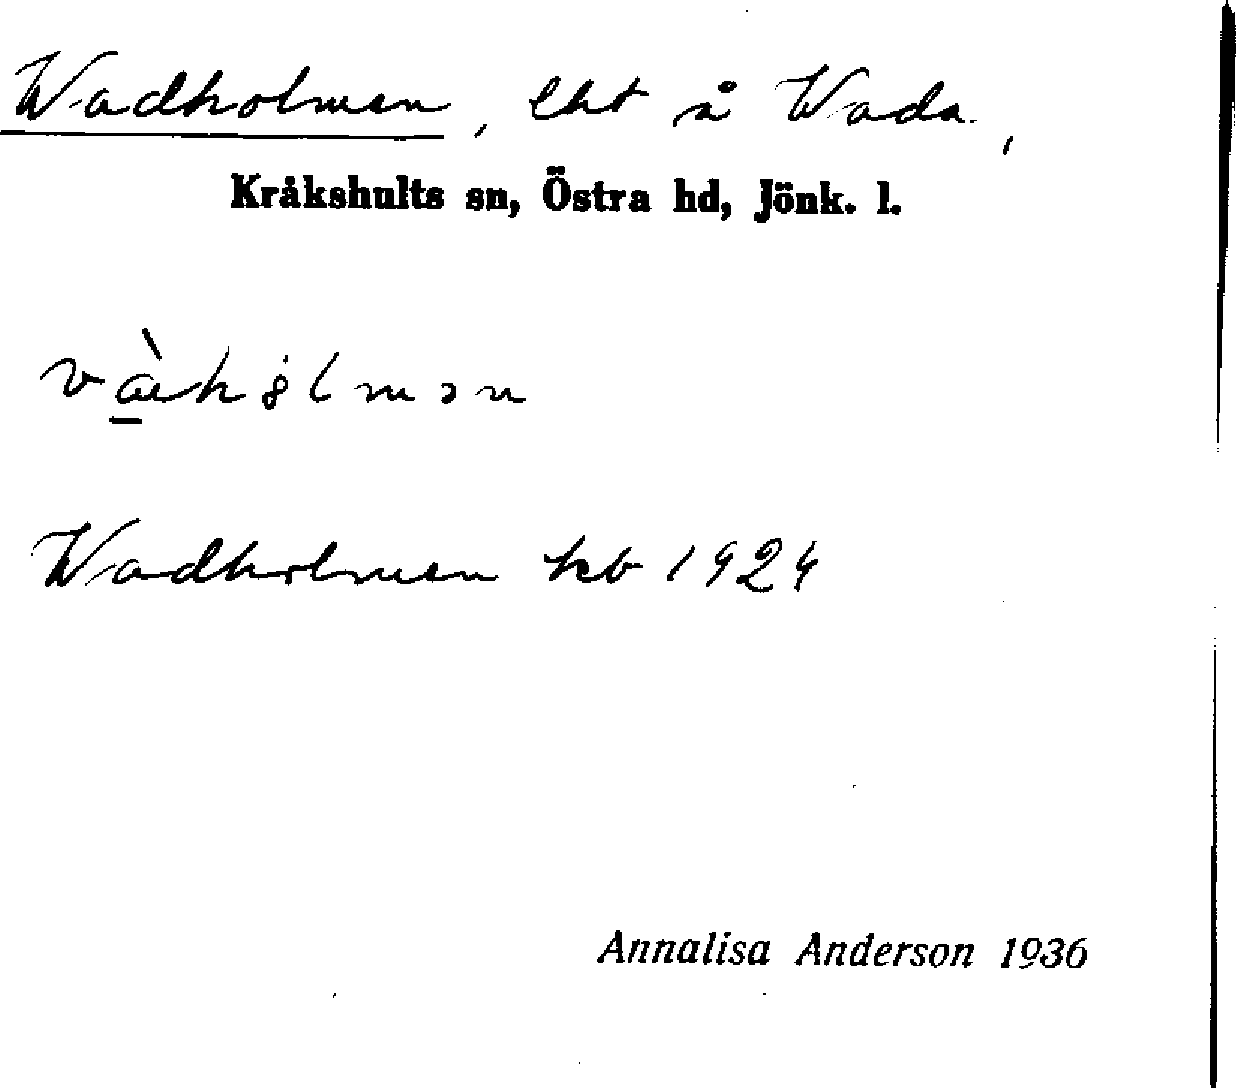 Wadholmen, lht å Wada,
Kråkshults sn, Östra hd, Jönk. l.
Wadholmen kb 1924
Annalisa Anderson 1936